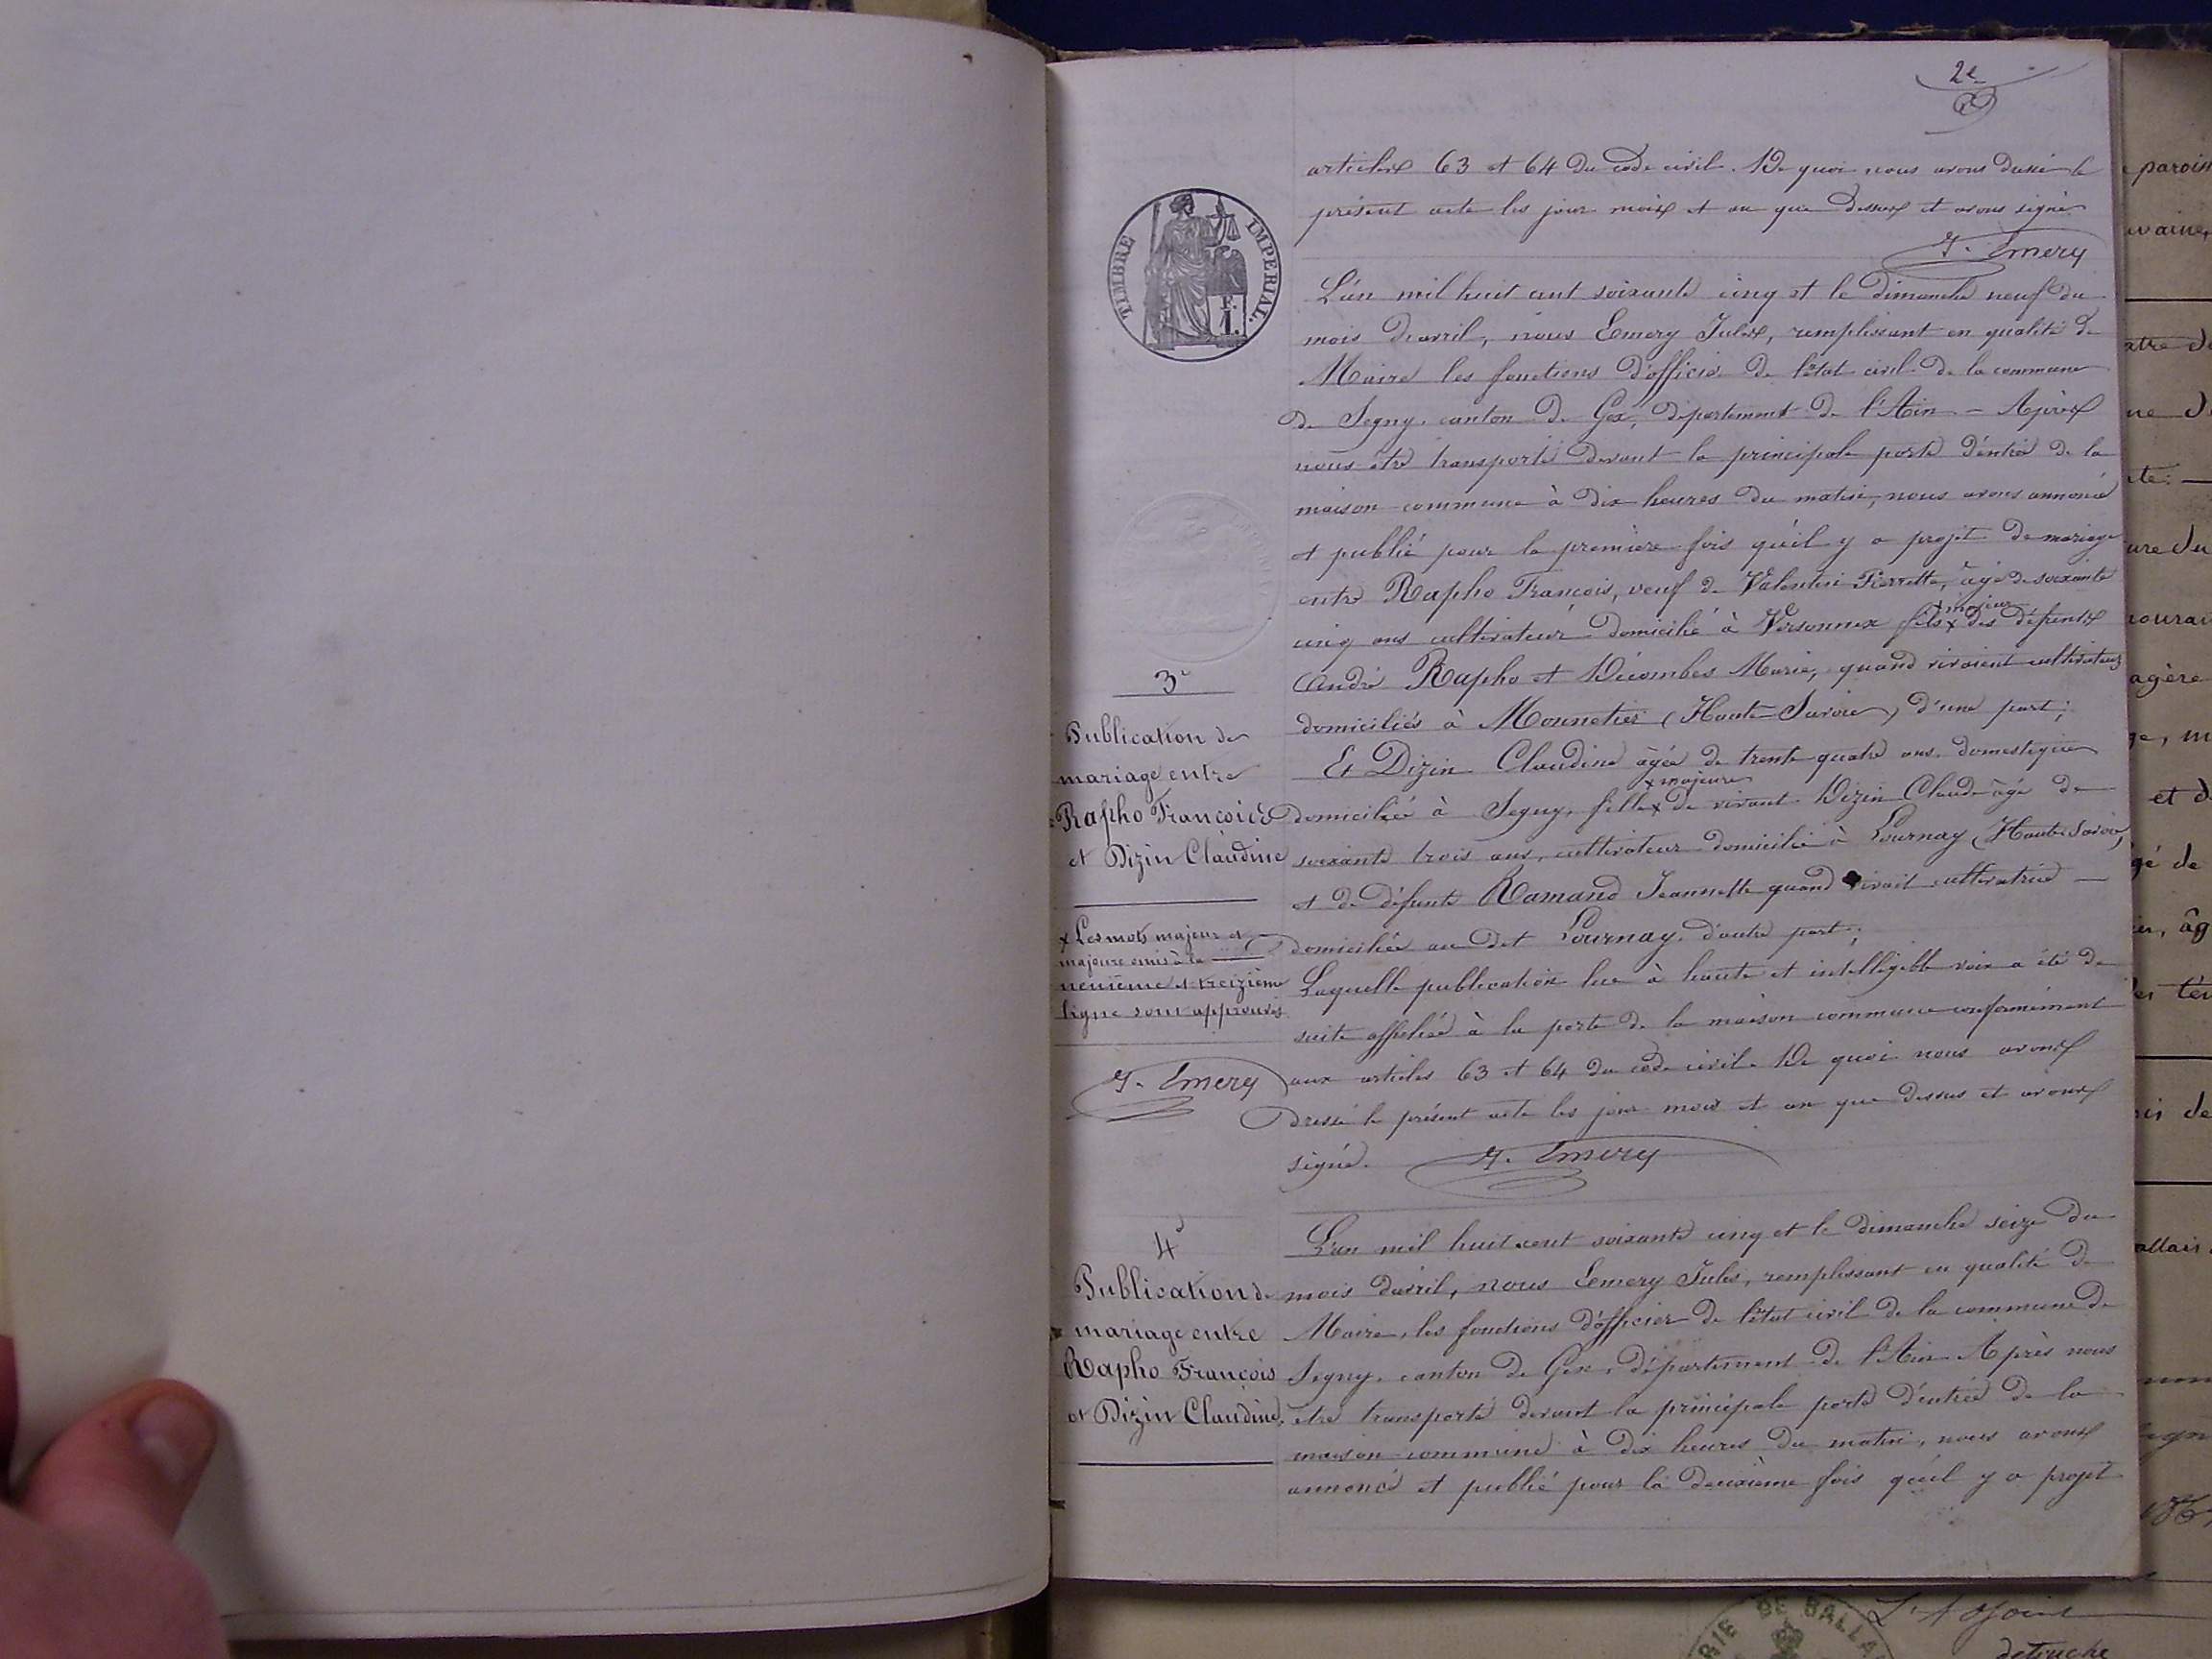 2e
articles 63 et 64 du code civil. De quoi nous avons dressé le
présent acte les jour mois et an que dessus et avons signé
J. Emery
TIMBRE IMPERIAL.
1 F.
L'an mil huit cent soixante cinq et le dimanche neuf du
mois d'avril, nous Emery Jules, remplissant en qualité de
Maire les fonctions d'officier de l'état civil de la commune
de Segny, canton de Gex, département de l'Ain - Après
nous être transporté devant la principale porte d'entrée de la
maison commune à dix heures du matin, nous avons annoncé
et publié pour la première fois qu'il y a projet de mariage
entre Rapho François, veuf de Valentin Pierrette, âgé de soixante
cinq ans cultivateur domicilié à Versonnex fils x majeur des défunts
André Rapho et Décombes Marie, quand vivaient cultivateurs
domiciliés à Monnetier (Haute Savoie) d'une part;
Et Dizin Claudine âgée de trente quatre ans, domestique
domiciliée à Segny, fille x majeure de vivant Dizin Claude âgé de
soixante trois ans, cultivateur domicilié à Lournay (Haute Savoie)
et de défunte Ramand Jeannette quand vivait cultivatrice
domiciliée au dit Lournay d'autre part;
Laquelle publication lue à haute et intelligible voix a été de
suite affichée à la porte de la maison commune conformément
aux articles 63 et 64 du code civil. De quoi nous avons
dressé le présent acte les jour mois et an que dessus et avons
signé. J. Emery
3e
Publication de
mariage entre
Rapho François
et Dizin Claudine
x Les mots majeur et
majeure omis à la
neuvième et treizième
ligne sont approuvés
J. Emery
4e
Publication de
mariage entre
Rapho François
et Dizin Claudine
L'an mil huit cent soixante cinq et le dimanche seize du
mois d'avril, nous Emery Jules, remplissant en qualité de
Maire, les fonctions d'officier de l'état civil de la commune de
Segny, canton de Gex, département de l'Ain Après nous
être transporté devant la principale porte d'entrée de la
maison commune à dix heures du matin, nous avons
annoncé et publié pour la deuxième fois qu'il y a projet
L'Adjoint
detruche